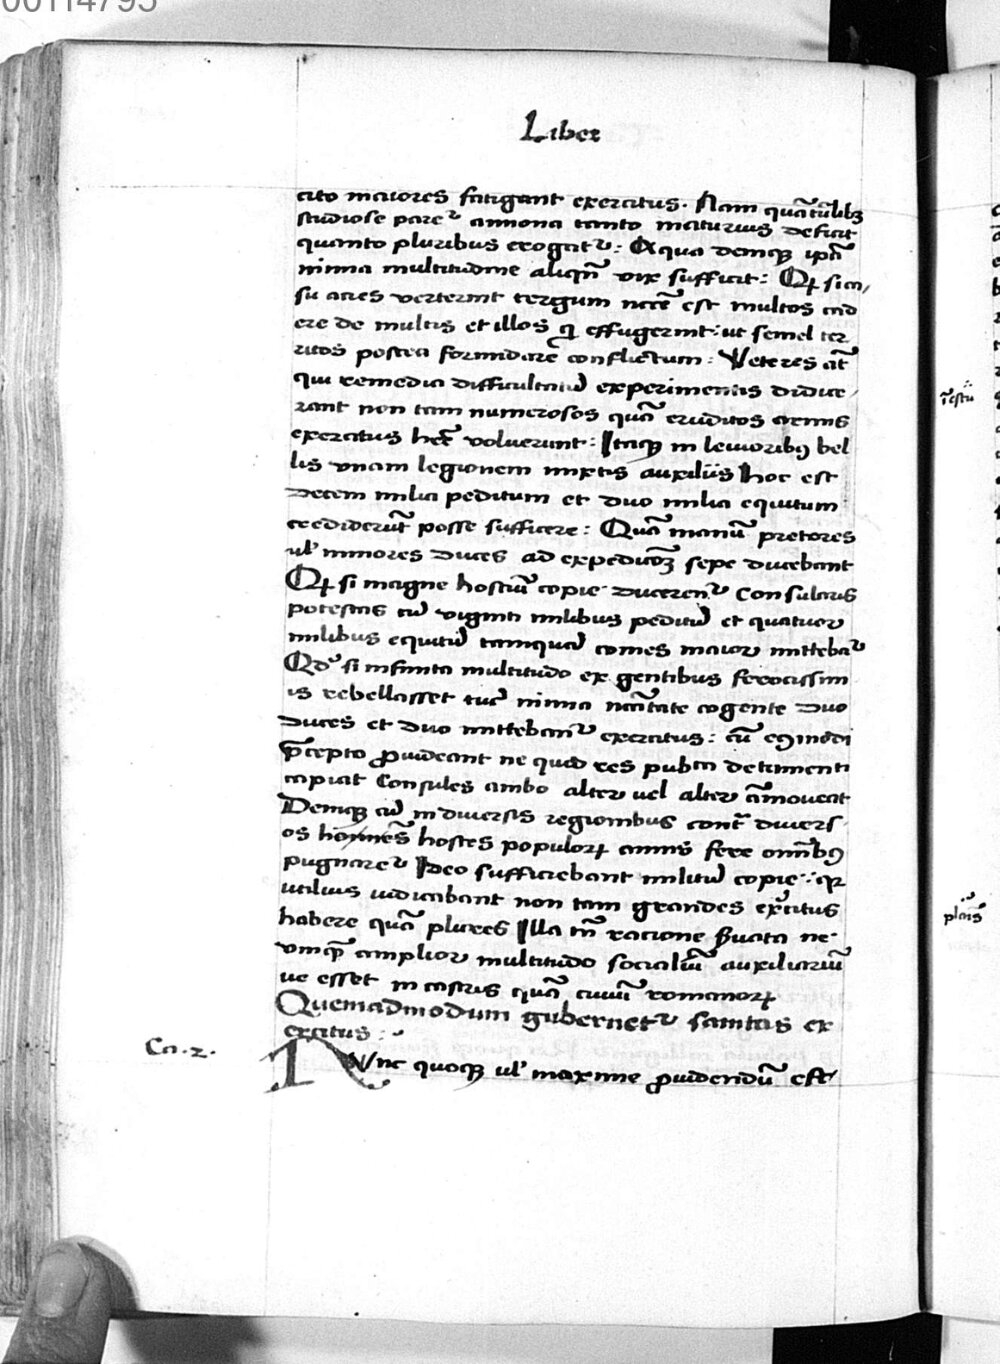 00114795
Liber
cito maiores fatigant exercitus. Nam quãtũlibꝫ
studiose pareᵗ annona tanto maturius deficit
quanto pluribus erogatᵗ: Aqua deniqꝫ ipã
nimia multitudine aliqñ vix sufficit: Qꝙ si ca/
su acies verterint tergum nccẽ est multos cad
ere de multis et illos q̲ effugerint: ut semel ter
ritos postea formidare conflictum: Veteres aũt
qui remedia difficultatũ experimentis didice/
rant non tam numerosos quã eruditos armis
exercitus hẽre voluerunt: Itaqꝫ in leuioribꝰ bel
lis vnam legionem mixtis auxiliis hoc est
Decem milia peditum et duo milia equitum
crediderũt posse sufficere: Quã manũ pretores
ul' minores duces ad expedicõꝫ sepe ducebant
Qꝙ si magne hostiũ copie dicerenᵗ Consularis
potestas cũ viginti milibus peditũ et quatuor
milibus equitũ tamquã comes maior mittebaᵗ
Qdᵒ si infinita multitudo ex gentibus ferocissim
is rebellasset tũc nimia nc̃itate cogente duo
duces et duo mittebanᵗ exercitus: cũ eꝰmodi
p̃cepto ꝓuideant ne quid res publica detrimenti
capiat Consules ambo alter uel alter
Deniqꝫ cũ in diuersis regionibus contᵃ diuers
os hostes populoꝝ annis fere omĩbꝰ
pugnareᵗ Ideo sufficiebant militũ copie: qꝛ
utilius iudicabant non tam grandes ex̃citus
habere quã plures Illa tñ racione s̃uata ne
vmqᷓ amplior multitudo socialiũ auxiliariũ
ue esset in castris quã ciuiũ romanoꝝ
Quemadmodum gubernetᵗ sanitas ex
ercitus:
Ca. 2.
Nunc quoqꝫ ul' maxime ꝓuidendũ est